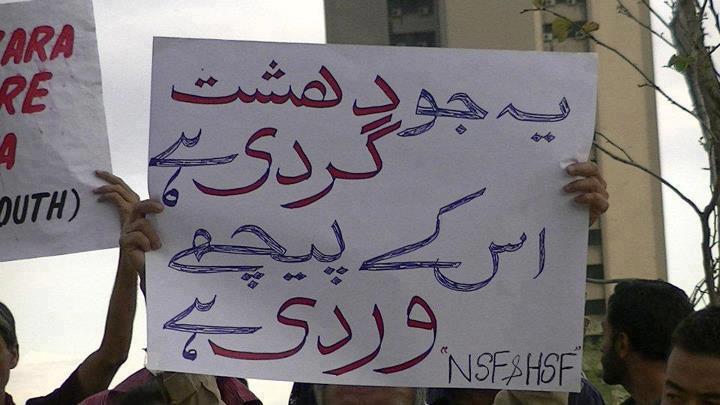 ZARA
RE
A
OUTH)
یہ جو دھشت
گردی ہے
اس کے پیچھے
وردی ہے
"NSF & HSF"